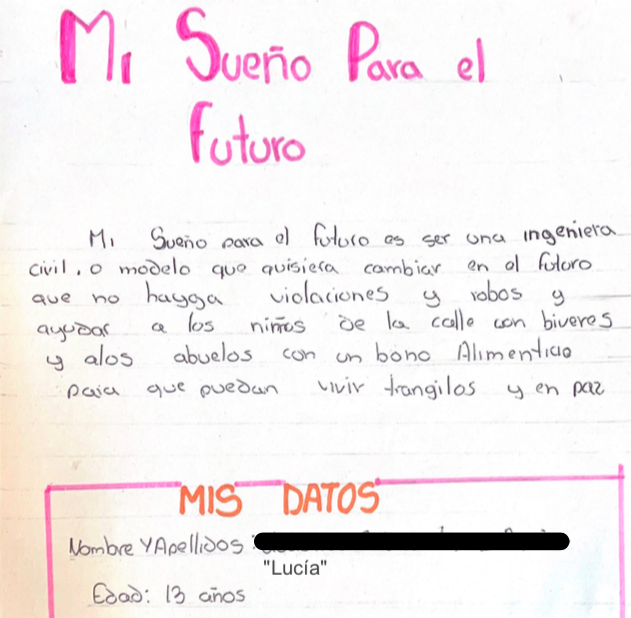 Mi Sueño Para el
Futuro
Mi Sueño para el futuro es ser una ingeniera
civil, o modelo que quisiera cambiar en el futuro
que no haygga violaciones y robos y
ayudar a los niños de la calle con biveres
y alos abuelos con un bono Alimenticio
para que puedan vivir tranqilos y en paz
MIS DATOS
Nombre Y Apellidos :
"Lucía"
Edad: 13 años